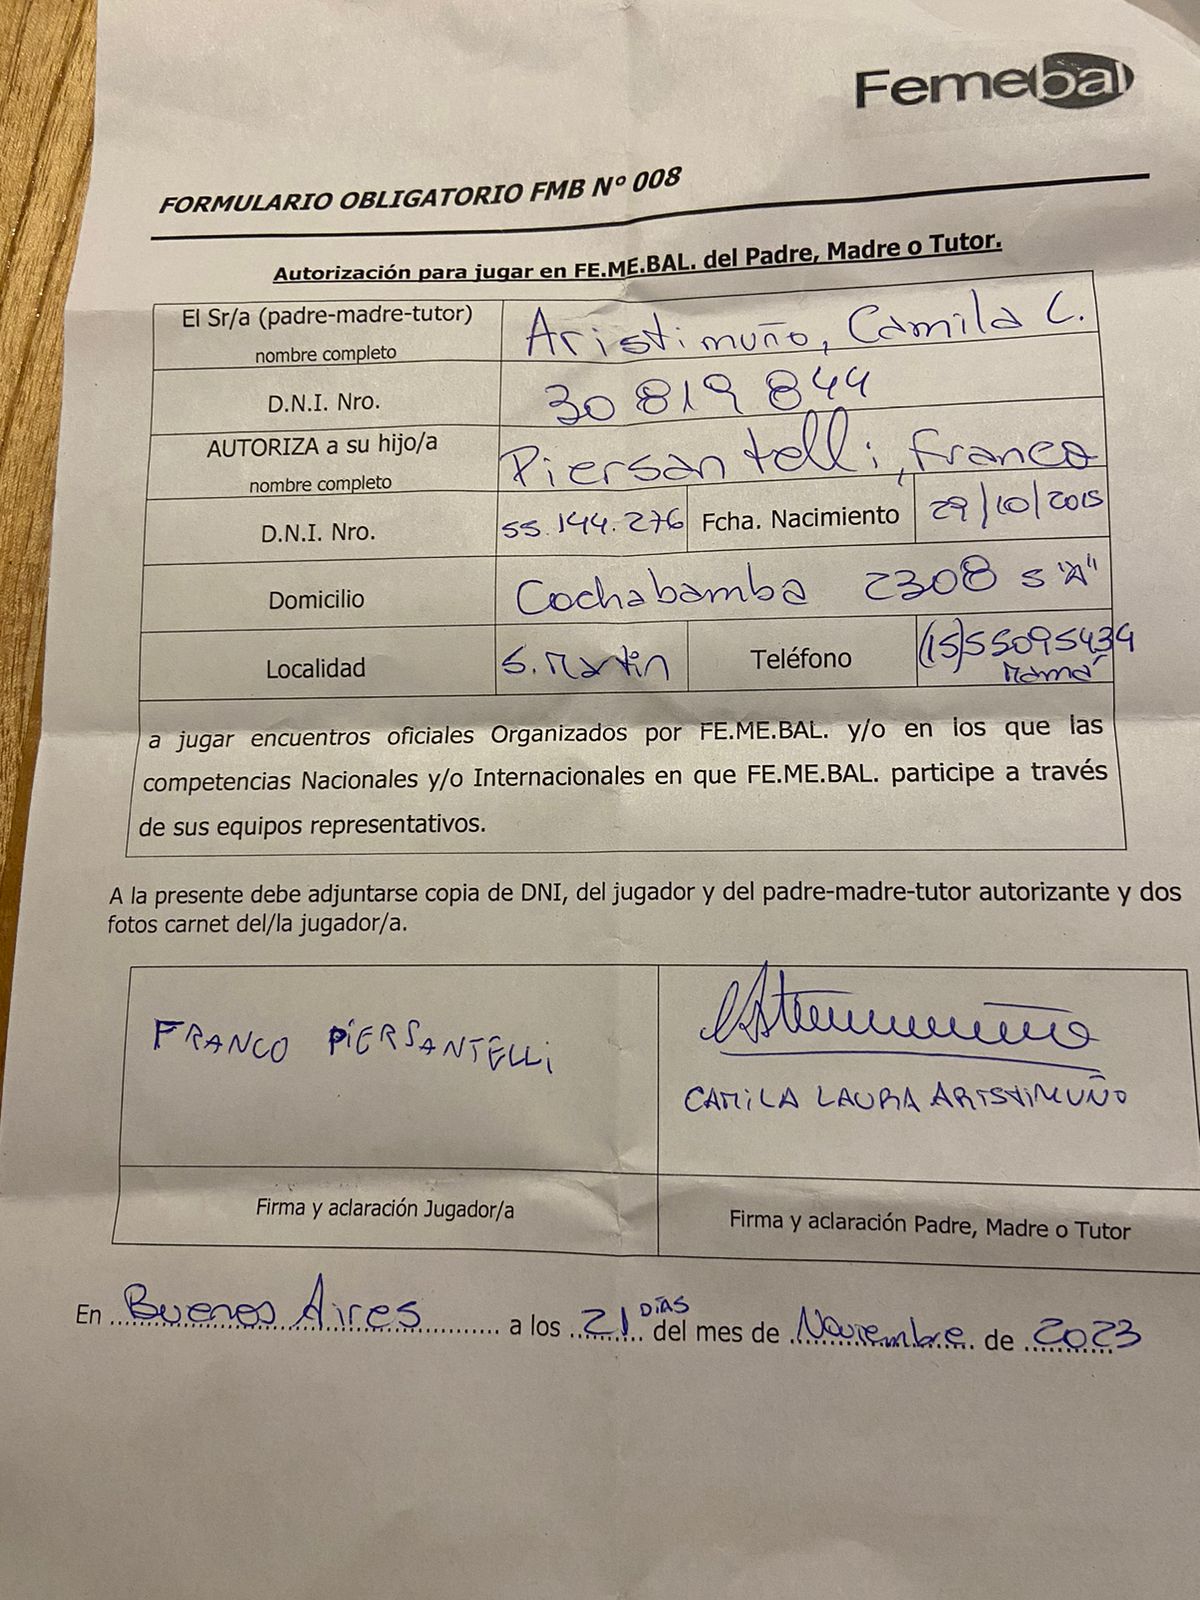 Femebal
FORMULARIO OBLIGATORIO FMB Nº 008
Autorización para jugar en FE.ME.BAL. del Padre, Madre o Tutor.
El Sr/a (padre-madre-tutor)
nombre completo
Aristimuño, Camila C.
D.N.I. Nro.
30 819 844
AUTORIZA a su hijo/a
nombre completo
Piersantelli, Franco
D.N.I. Nro.
55.144.276
Fcha. Nacimiento
29/10/2015
Domicilio
Cochabamba 2308 5 "A"
Localidad
S. Martin
Teléfono
(15)55095434
Mamá
a jugar encuentros oficiales Organizados por FE.ME.BAL. y/o en los que las
competencias Nacionales y/o Internacionales en que FE.ME.BAL. participe a través
de sus equipos representativos.
A la presente debe adjuntarse copia de DNI, del jugador y del padre-madre-tutor autorizante y dos
fotos carnet del/la jugador/a.
FRANCO PIERSANTELLI
CAMILA LAURA ARISTIMUÑO
Firma y aclaración Jugador/a
Firma y aclaración Padre, Madre o Tutor
En Buenos Aires a los 21 DÍAS del mes de Noviembre de 2023